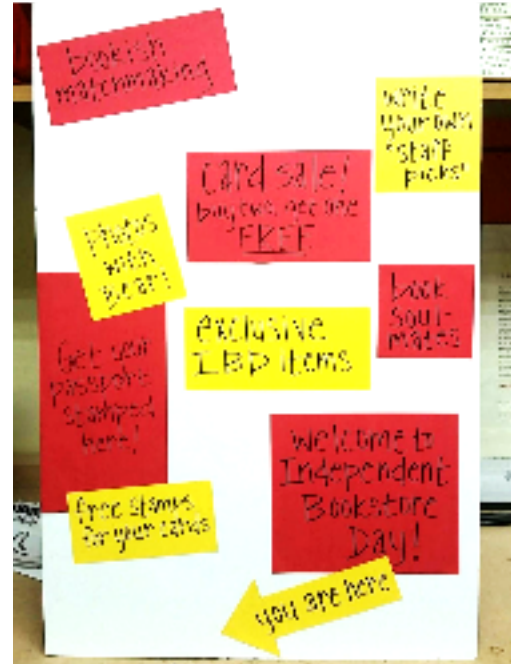 bookish
matchmaking
write
your own
"staff
picks"
card sale!
buy two get one
FREE
photos
with
bear!
book
soul-
mates
exclusive
IBD items
Get your
passport
stamped
here!
welcome to
Independent
Bookstore
Day!
free stamps
for your cards
you are here